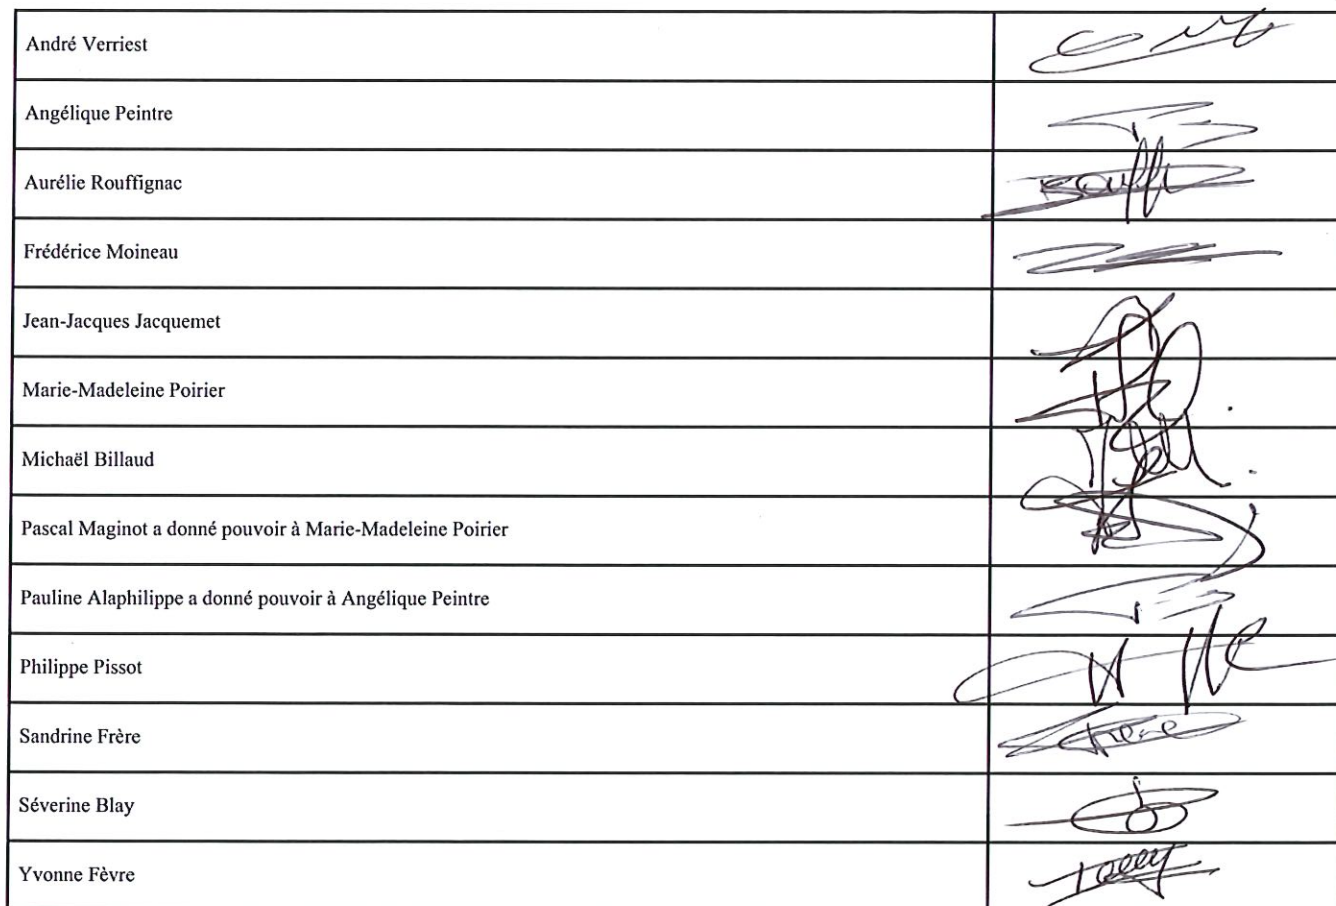 André Verriest
Angélique Peintre
Aurélie Rouffignac
Frédérice Moineau
Jean-Jacques Jacquemet
Marie-Madeleine Poirier
Michaël Billaud
Pascal Maginot a donné pouvoir à Marie-Madeleine Poirier
Pauline Alaphilippe a donné pouvoir à Angélique Peintre
Philippe Pissot
Sandrine Frère
Séverine Blay
Yvonne Fèvre